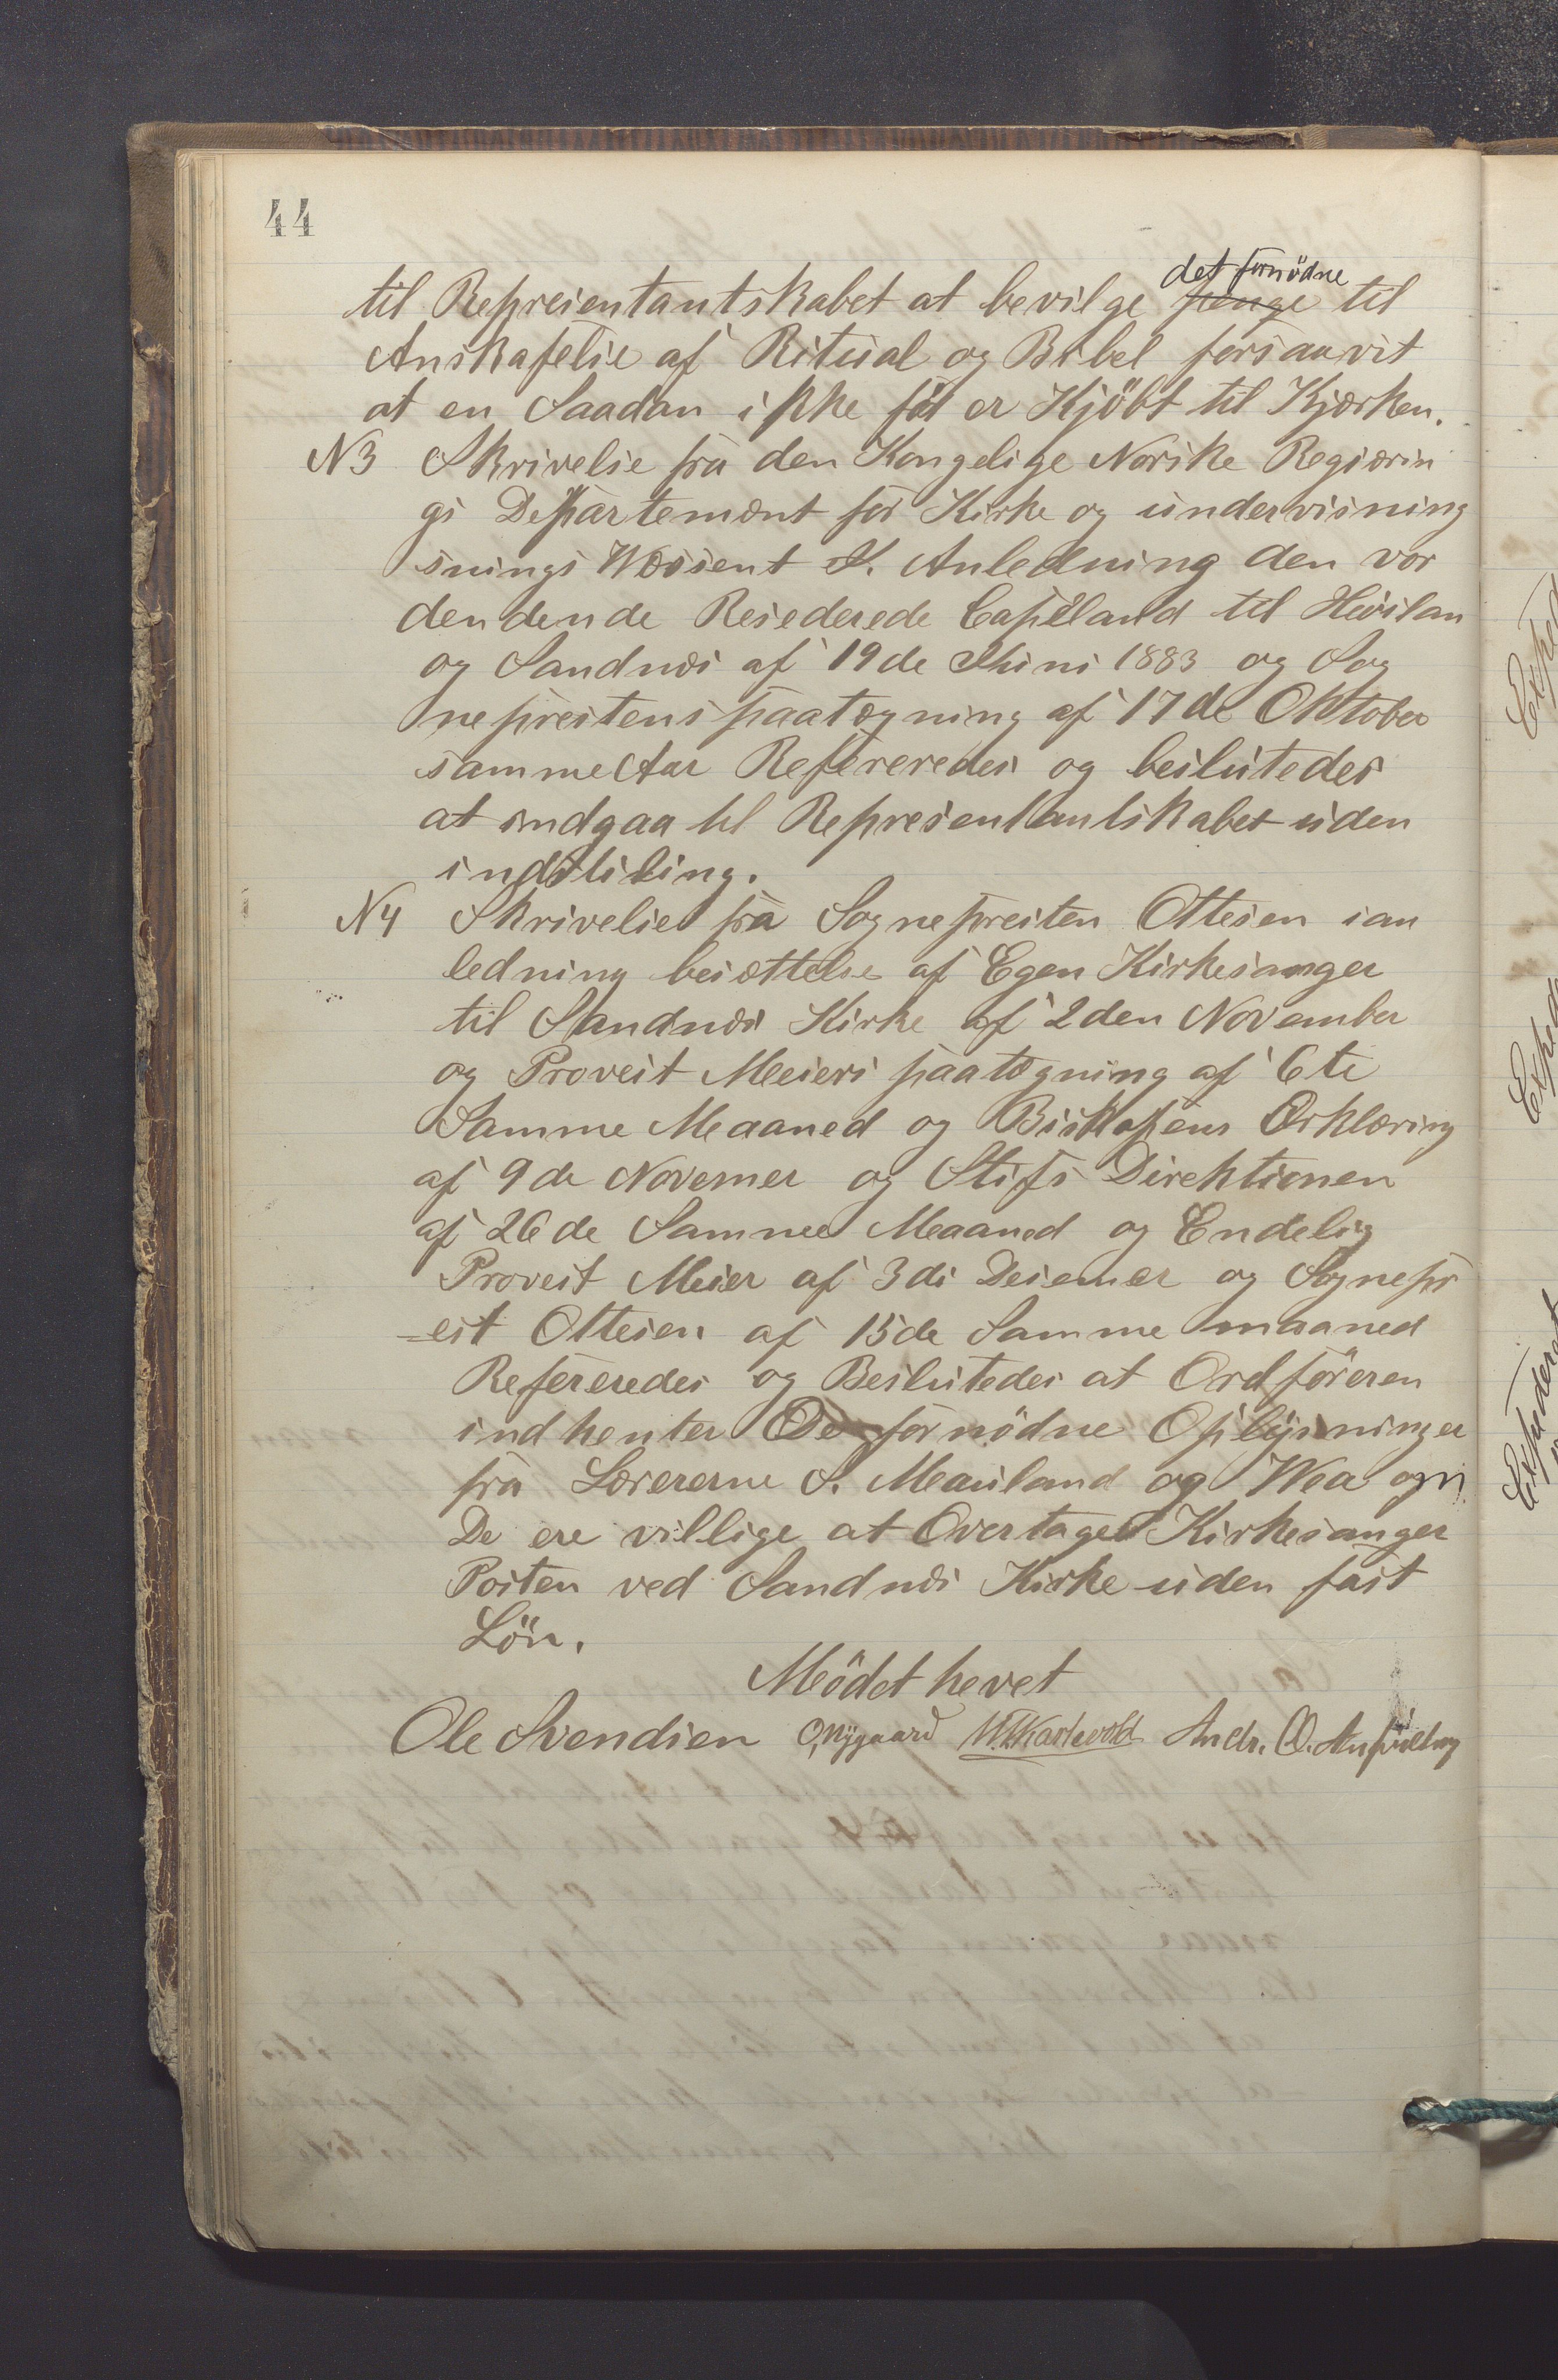 44
til Represientantskabet at bevilge det fornödne penge til
Anskafelse af Ritual og Bibel forsaavit
at en Saadan ikke för er Kjöbt til Kjærken.
N3 Skrivelse fra den Kongelige Norske Regiærin
gs Departemænt for Kirke og undervisning
snings Wæssent I. Anledning den vor
dendende Resederede Capelland til Höiland
og Sandnæs af 19de Juni 1883 og Sog
neprestens paatægning af 17de Oktober
samme Aar Refereredes og beslutedes
at indgaa til Representantskabet uden
indstiling.
N4 Skrivelse fra Sognepresten Ottesen ian
ledning besættelse af Egen Kirkesanger
til Sandnæs Kirke af 2den November
og Provest Meiers paatægning af 6te
Samme Maaned og Biskopens Ærklæring
af 9de Novemer og Stifs Direktionen
af 26de Samme Maaned og Endelig
Provest Meier af 3di Desemer og Sognepr
=est Ottesen af 15de Samme maaned
Refereredes og Beslutedes at Ordföreren
indhenter De fornödne Oplysninger
fra Lærererne S. Mauland og Wea om
De ere villige at Overtage Kirkesanger
Posten ved Sandnæs Kirke uden fast
Lön.
Mödet hevet
Ole Svendsen O. Nygaard Karlsvold Andr. O.
Exped
Exped